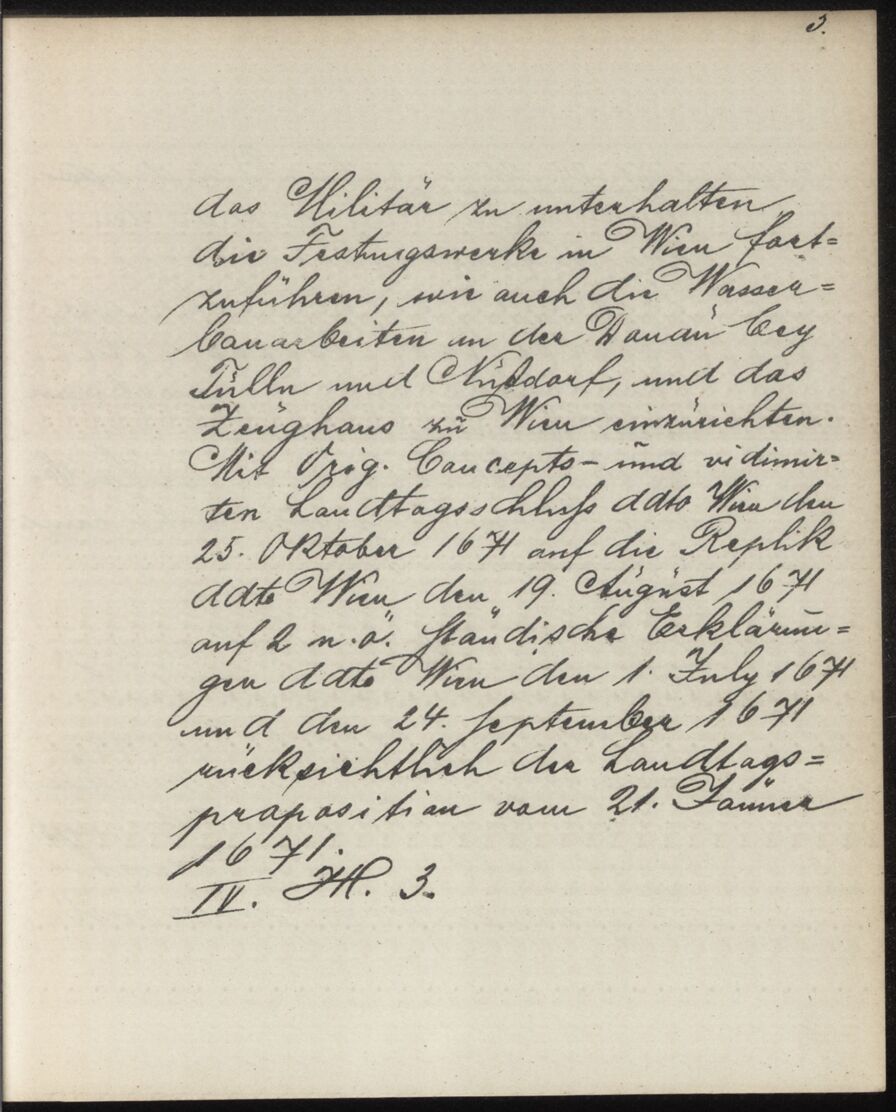 3.
das Militär zu unterhalten
die Festungswerke in Wien fort=
zuführen, wie auch die Wasser=
bauarbeiten in der Donau bey
Tulln und Nußdorf, und das
Zeughaus zu Wien einzurichten.
Mit Orig. Concepts- und vidimir=
ten Landtagsschluß ddto Wien den
25. Oktober 1671 auf die Replik
ddto Wien den 19. August 1671
auf 2 n. ö. ständische Erklärun=
gen ddto Wien den 1. July 1671
und den 24. September 1671
rücksichtlich der Landtags=
proposition vom 21. Jänner
1671.
IV. H. 3.